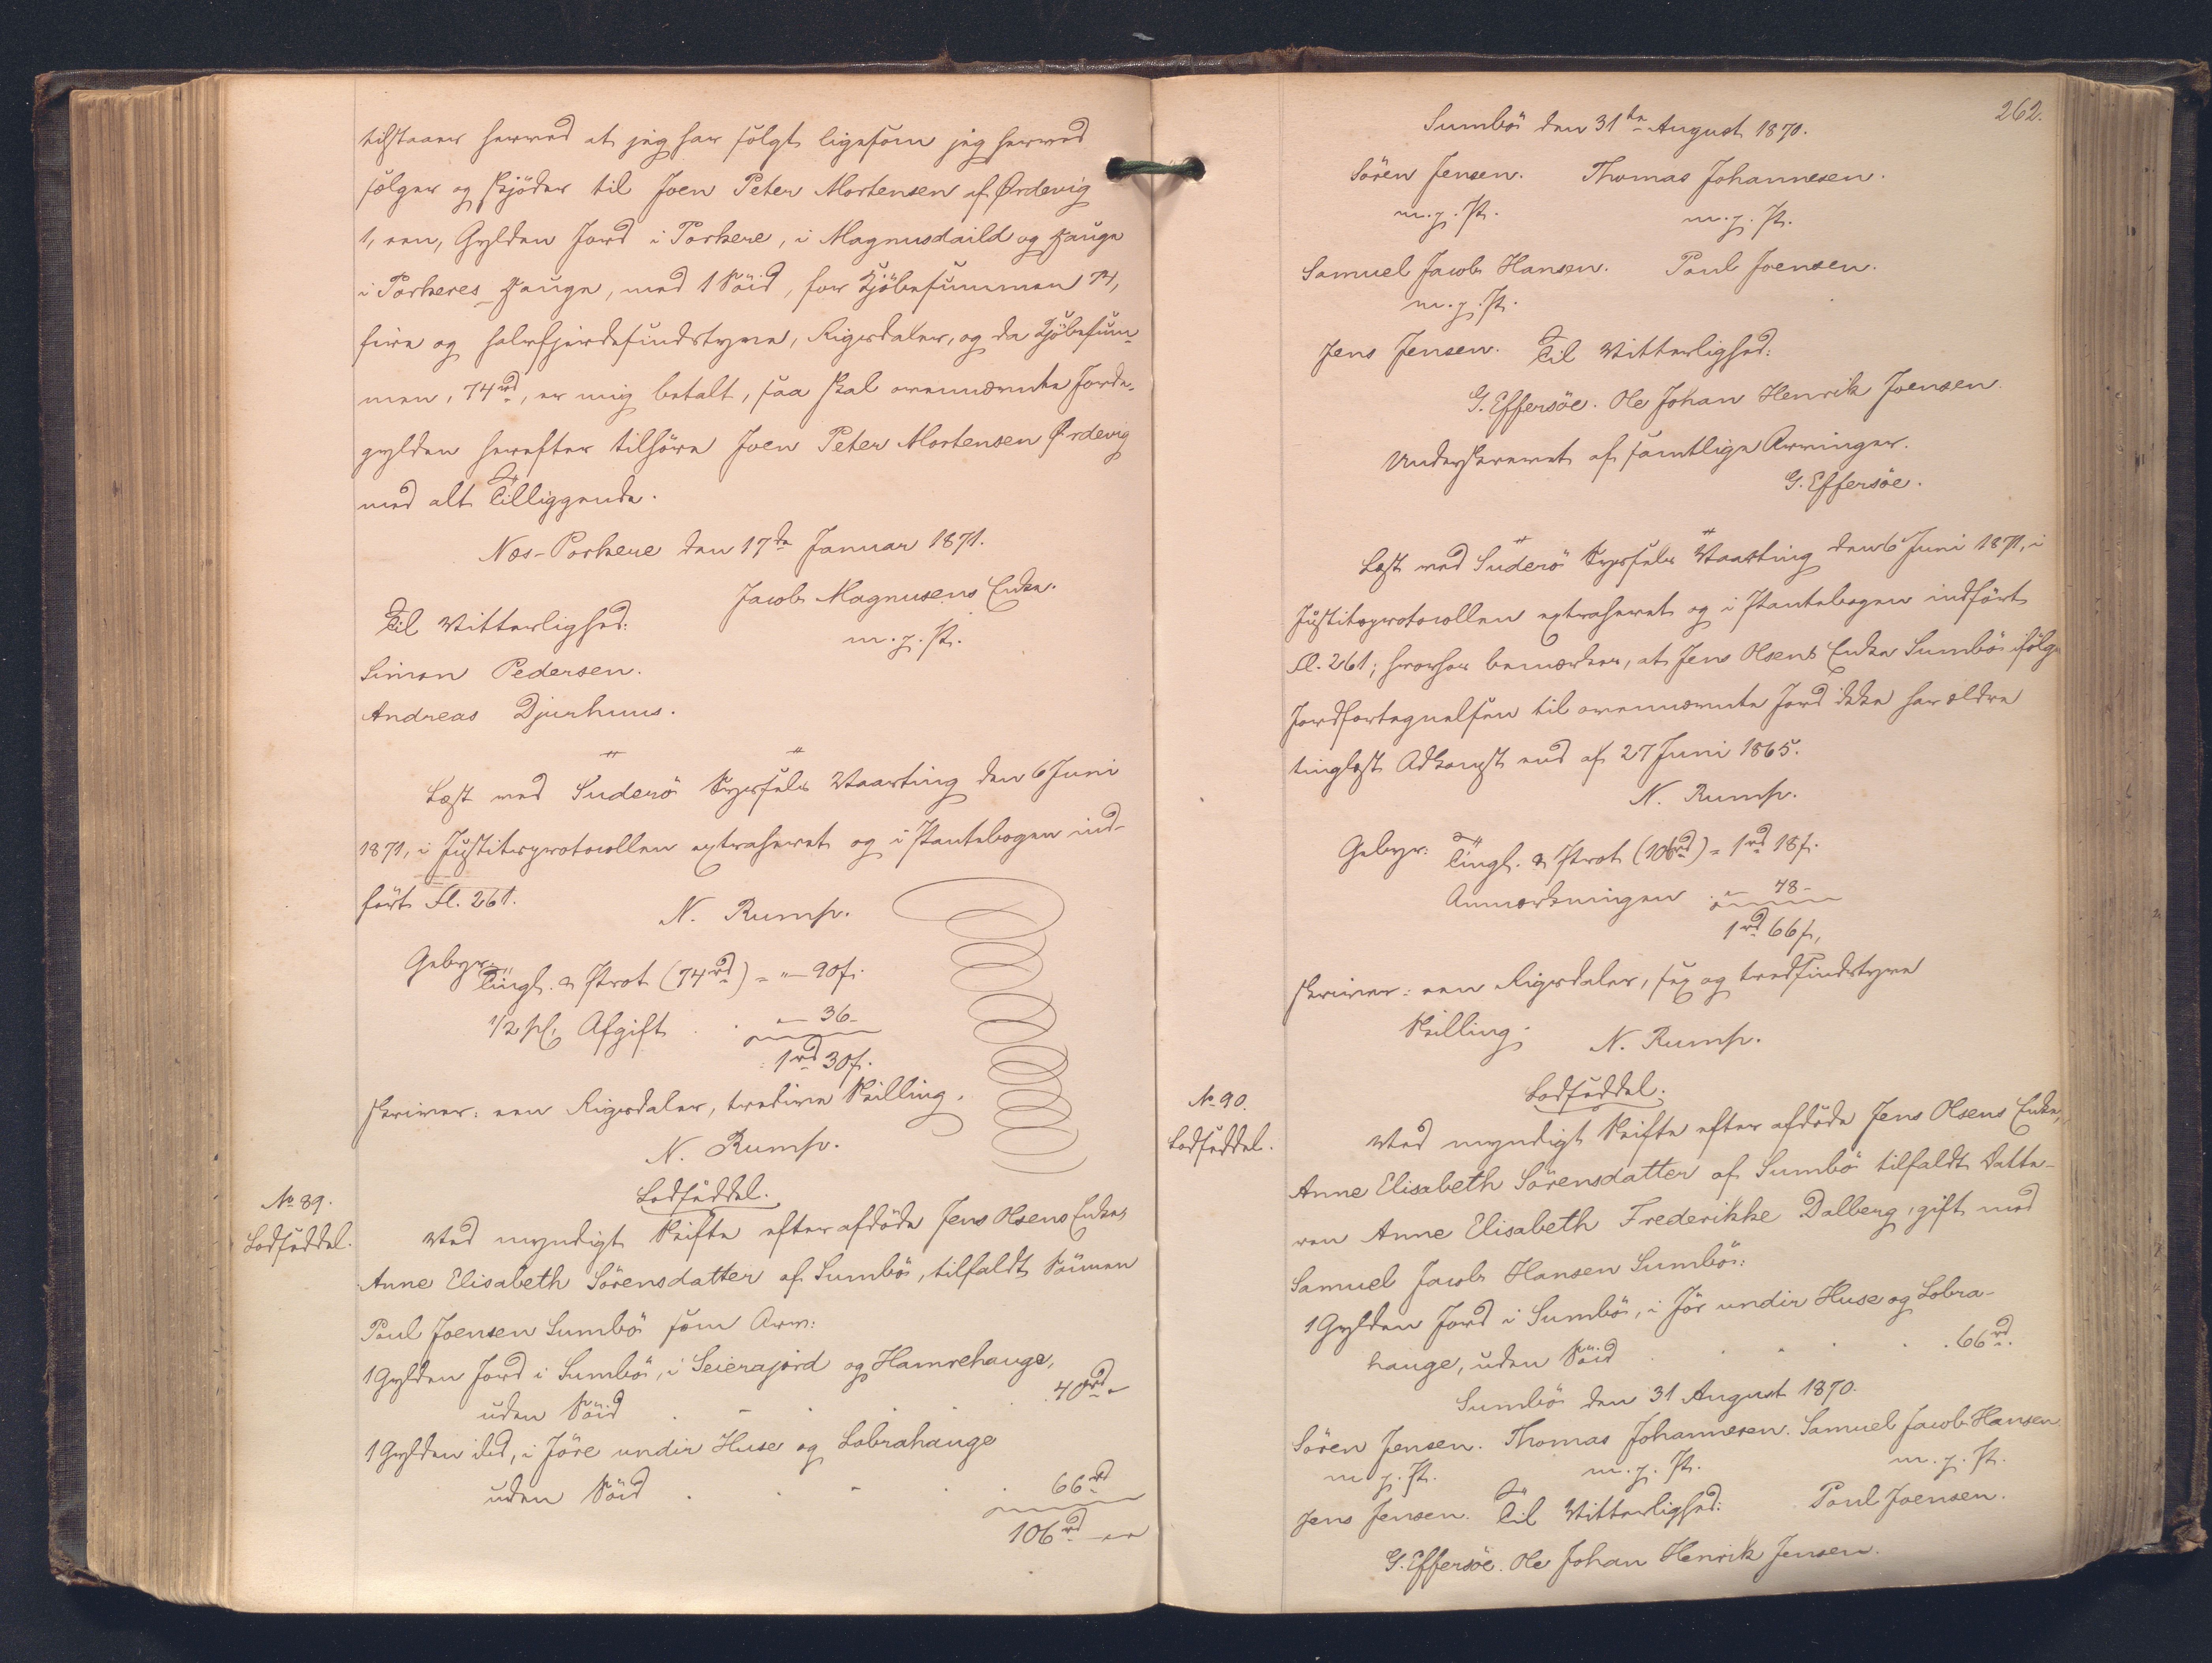 tilstaaer herved at jeg har solgt ligesom jeg herved
sælger og skjöder til Joen Peter Mortensen af Ördevig
1, een, Gylden Jord i Porkere, i Magnusdaild og Hauge
i Porkeres Hauge, med 1 Söid, for Kjöbesummen 74,
fire og halvfjerdesindstyve, Rigsdaler, og da Kjöbesum-
men, 74 rd, er mig betalt, saa skal ovennævnte Jorde-
gylden herefter tilhöre Joen Peter Mortensen Ördevig
med alt Tilliggende.
Næs-Porkere den 17de Januar 1871.
Jacob Magnusens Enke.
m. f. P.
Til Vitterlighed:
Simon Pedersen.
Andreas Djurhuus.
Læst ved Suderö Syssels Vaarting den 6 Juni
1871, i Justitsprotocollen extraheret og i Pantebogen ind-
fört Fl. 261.
N. Rump.
Gebyr: Tingl. & Prot (74 rd) = " - 90 s.
1/2 pCt Afgift . . " - 36 -
1 rd 30 s.
skriver: een Rigsdaler, tredive Skilling.
N. Rump.
No 89.
Lodseddel.
Lodseddel.
Ved myndigt Skifte efter afdöde Jens Olsens Enke,
Anne Elisabeth Sörensdatter af Sumbö, tilfaldt Sönnen
Poul Joensen Sumbö som Arv:
1 Gylden Jord i Sumbö, i Seierajord og Hamrehauge,
uden Söid . . . . . 40 rd "
1 Gylden ibd, i Jöre undir Huse og Lobrahauge
uden Söid . . . . . 66 rd
106 rd
262.
Sumbö den 31te August 1870.
Sören Jensen. Thomas Johannesen.
m. f. P. m. f. P.
Samuel Jacob Hansen. Poul Joensen.
m. f. P.
Jens Jensen. Til Vitterlighed:
G. Effersöe. Ole Johan Henrik Joensen.
Underskrevet af samtlige Arvinger.
G. Effersöe.
Læst ved Suderö Syssels Vaarting den 6 Juni 1871, i
Justitsprotocollen extraheret og i Pantebogen indfört
Fl. 261; hvorhos bemærkes, at Jens Olsens Enke Sumbö ifölge
Jordfortegnelsen til ovennævnte Jord ikke har ældre
tinglæst Adkomst end af 27 Juni 1865.
N. Rump.
Gebyr: Tingl. & Prot (106 rd) = 1 rd 18 s.
Anmærkningen . " - 48 -
1 rd 66 s,
skriver: een Rigsdaler, sex og tredsindstyve
Skilling. N. Rump.
No 90.
Lodseddel.
Lodseddel.
Ved myndigt Skifte efter afdöde Jens Olsens Enke,
Anne Elisabeth Sörensdatter af Sumbö tilfaldt Datte-
ren Anne Elisabeth Frederikke Dalberg, gift med
Samuel Jacob Hansen Sumbö:
1 Gylden Jord i Sumbö, i Jör undir Huse og Lobra-
hauge, uden Söid . . . . . 66 rd.
Sumbö den 31 August 1870.
Sören Jensen. Thomas Johannesen. Samuel Jacob Hansen
m. f. P. m. f. P. m. f. P.
Jens Jensen. Til Vitterlighed: Poul Joensen.
G. Effersöe. Ole Johan Henrik Jensen.